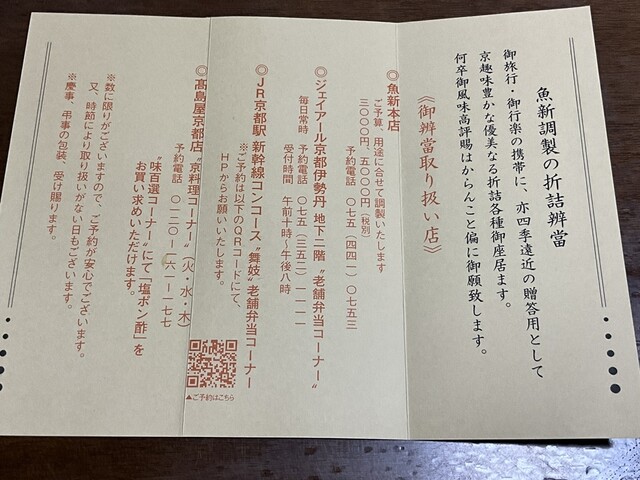 魚新調製の折詰辨當
御旅行・御行楽の携帯に、亦四季遠近の贈答用として
京趣味豊かな優美なる折詰各種御座居ます。
何卒御風味高評賜はからんこと偏に御願致します。
《御辨當取り扱い店》
◎魚新本店
予約電話 〇七五（四四一）〇七五三
ご予算、用途に合せて調製いたします
三〇〇〇円、五〇〇〇円（税別）
◎ジェイアール京都伊勢丹 地下二階 〝老舗弁当コーナー〟
毎日常時 予約電話 〇七五（三五二）一一一一
受付時間 午前十時〜午後八時
◎JR京都駅 新幹線コンコース 〝舞妓〟老舗弁当コーナー
※ご予約は以下のQRコードにて、
HPからお願いいたします。
▲ご予約はこちら
◎髙島屋京都店 〝京料理コーナー〟（火・水・木）
予約電話 〇一二〇ー一六一ー一七七
〝味百選コーナー〟にて「塩ポン酢」を
お買い求めいただけます。
※数に限りがございますので、ご予約が安心でございます。
又、時節により取り扱いがない日もございます。
※慶事、弔事の包装、受け賜ります。